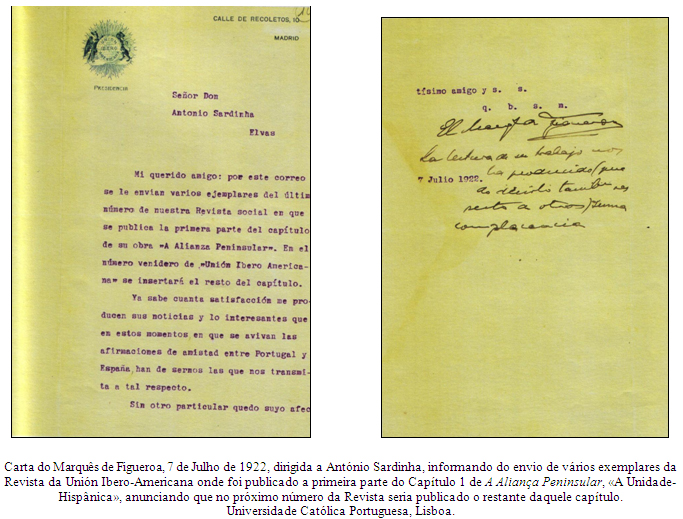 CALLE DE RECOLETOS, 10
MADRID
PRESIDENCIA
Señor Don
Antonio Sardinha
Elvas
Mi querido amigo: por este correo
se le envian varios ejemplares del últim
número de nuestra Revista social en que
se publica la primera parte del capítulo
de su obra «A Alianza Peninsular». En el
número venidero de »Unión Ibero America-
na» se insertará el resto del capítulo.
Ya sabe cuanta satisfacción me pro
ducen sus noticias y lo interesantes que
en estos momentos en que se avivan las
afirmaciones de amistad entre Portugal y
España, han de sernos las que nos transmi-
ta a tal respecto.
Sin otro particular quedo suyo afec
tísimo amigo y s. s.
q. b. s. m.
El Marqués de Figueroa
La lectura de su trabajo nos
7 Julio 1922.
ha producido (pue
do decirlo también
a otros) suma
complacencia
Carta do Marquês de Figueroa, 7 de Julho de 1922, dirigida a António Sardinha, informando do envio de vários exemplares da
Revista da Unión Ibero-Americana onde foi publicado a primeira parte do Capítulo 1 de A Aliança Peninsular, «A Unidade-
Hispânica», anunciando que no próximo número da Revista seria publicado o restante daquele capítulo.
Universidade Católica Portuguesa, Lisboa.